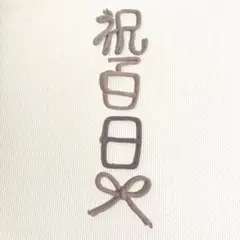 祝百日